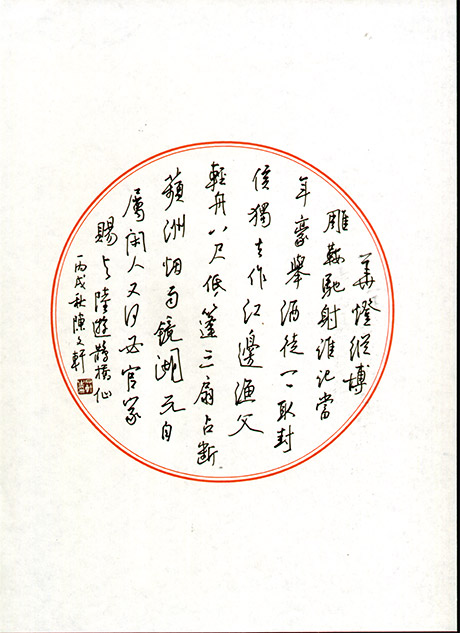 華燈縱博
雕鞍馳射誰记當
年豪舉酒徒一一取封
侯獨去作江邊漁父
輕舟八尺低篷三扇占斷
蘋洲烟雨鏡湖元自
屬闲人又何必官家
賜与 陸遊鵲橋仙
丙戌秋陳文軒